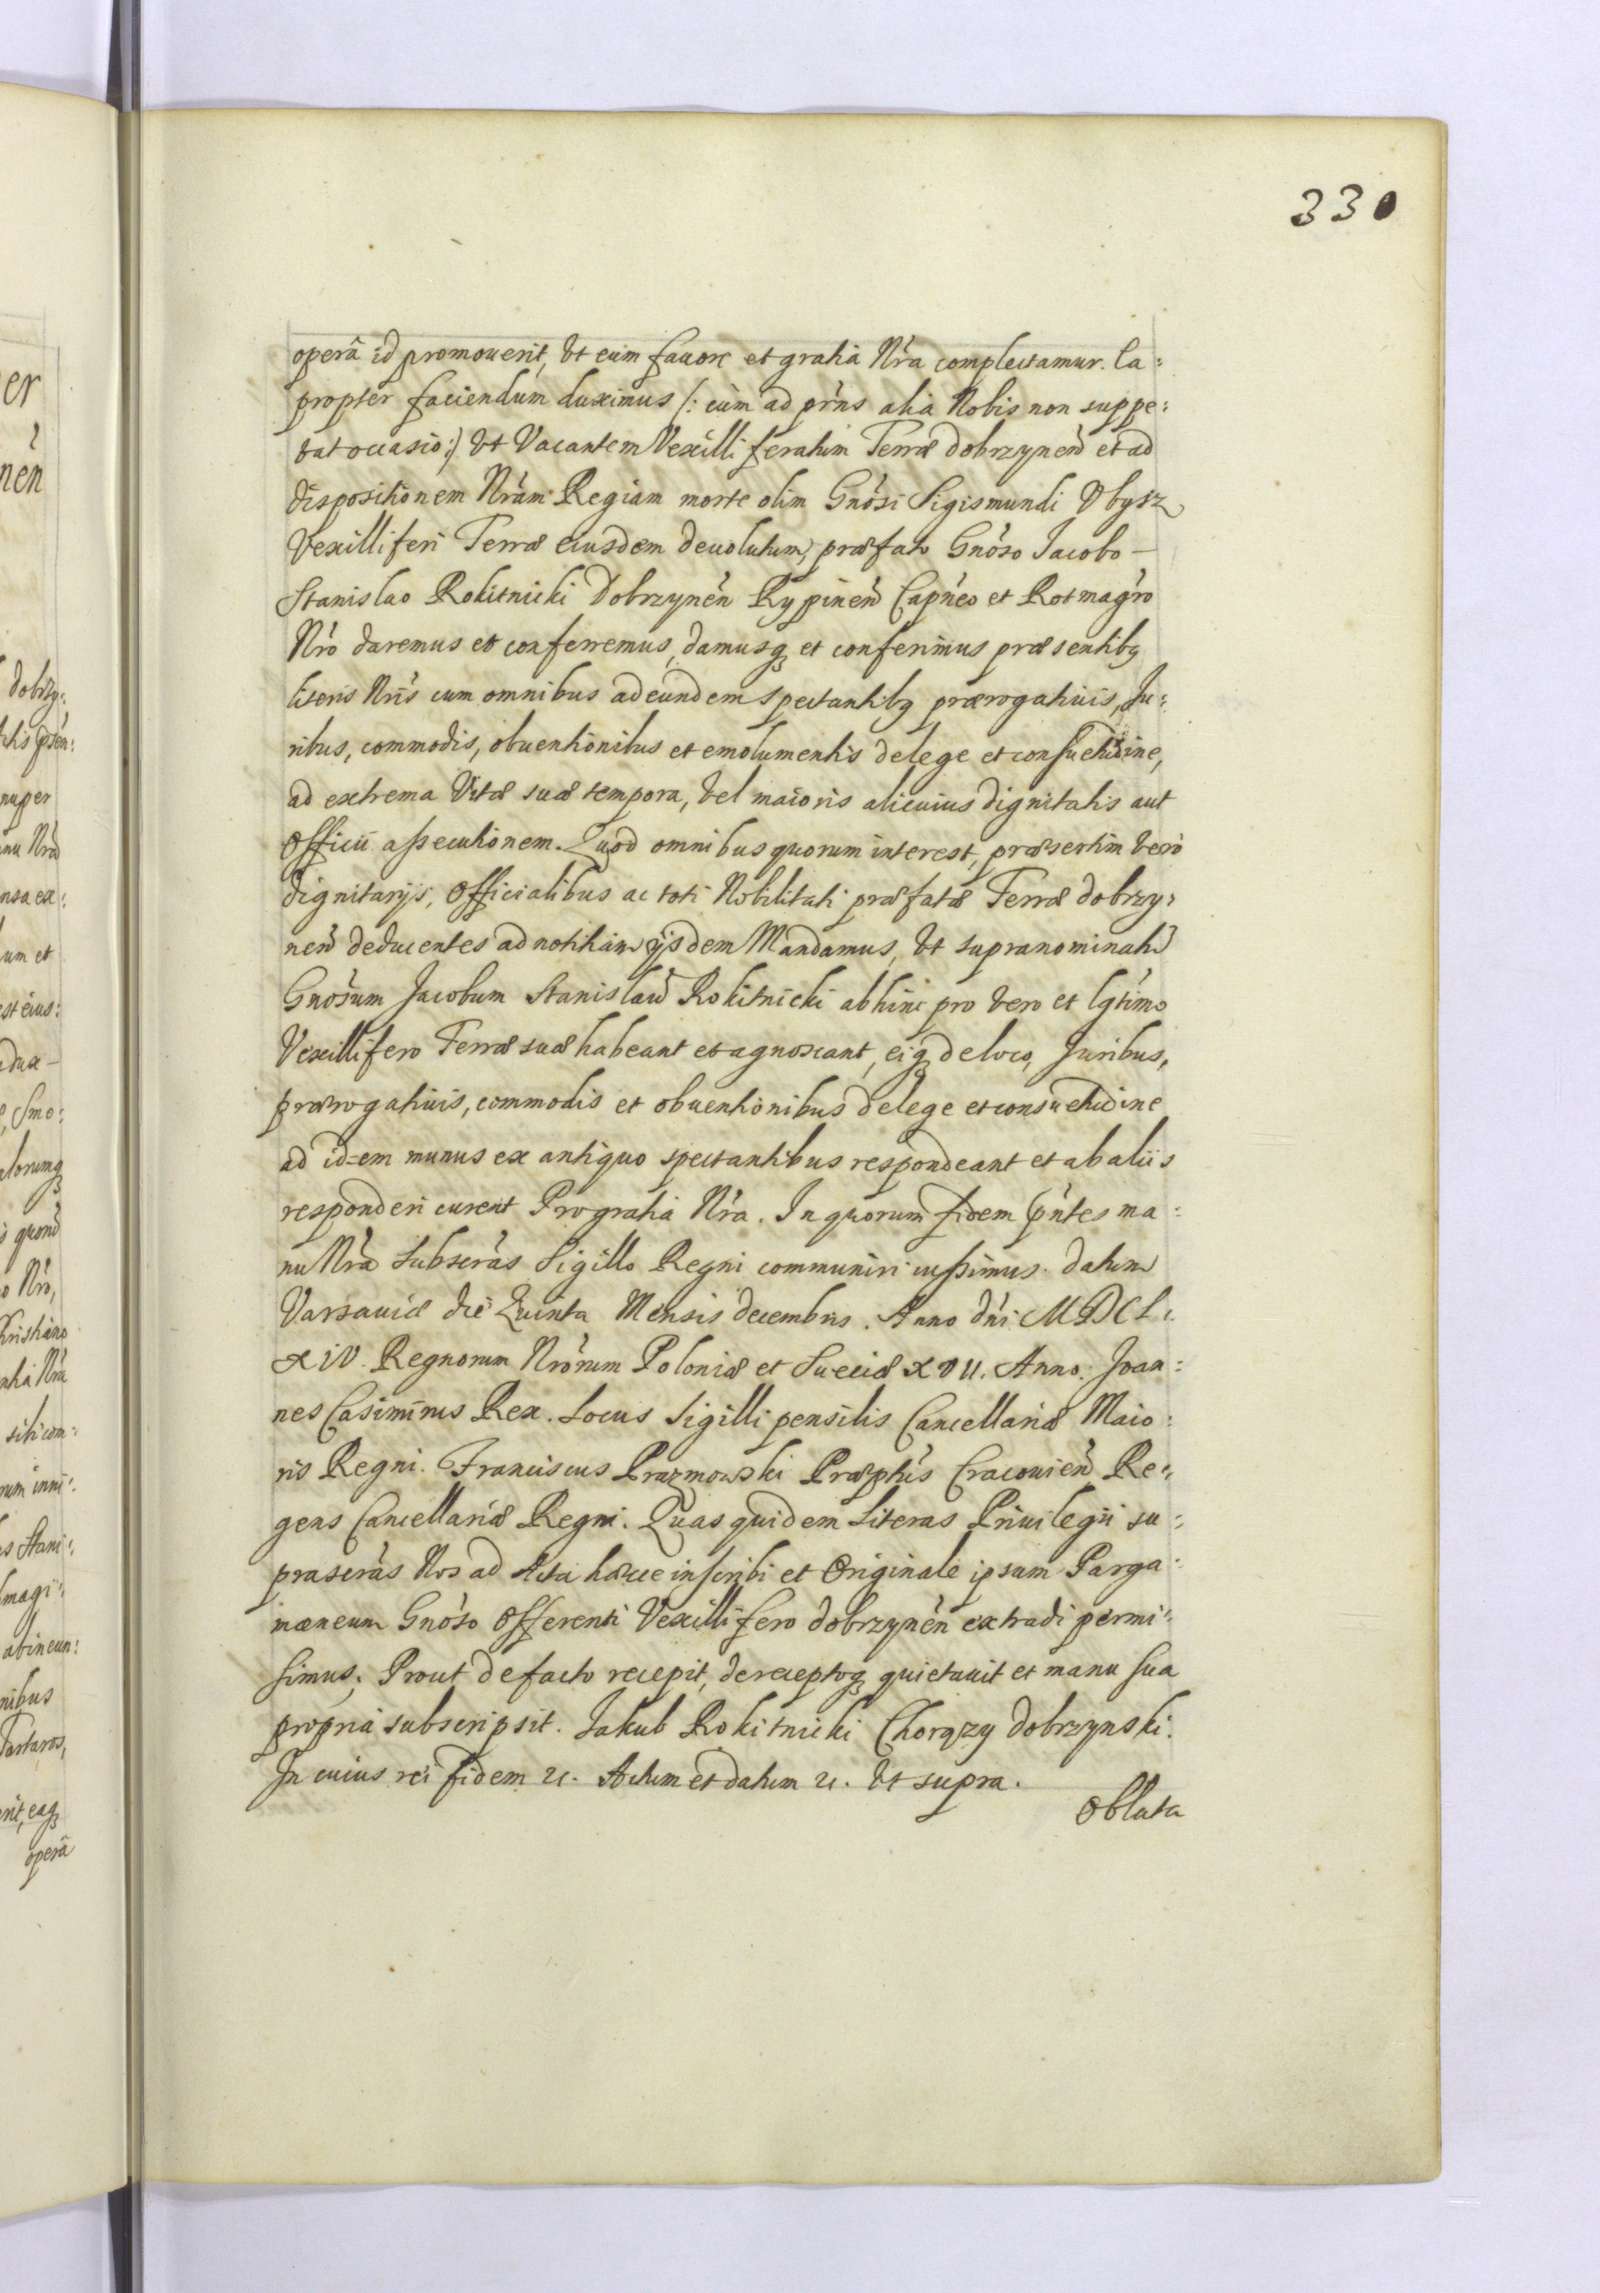 330
operâ id promouerit, vt eum fauore et gratia Nr̃a complectamur. Ea:
propter faciendum duximus /: cùm ad pr̃ns alia Nobis non suppe:
tat occasio :/ vt Vacantem Vexilli feratum Terræ dobrzyneñ et ad
dispositionem Nr̃am Regiam morte olim Gnõsi Sigismundi Vbysz
Vexilliferi Terræ eiusdem deuolutum, præfato Gnõso Jacobo –
Stanislao Rokitnicki Dobrzyneñ Rypineñ Capñeo et Rotmagr̃o
Nr̃o daremus et conferremus, damusq3 et conferimus præsentibq
literis Nr̃is cum omnibus ad eundem spectantibq prærogatiuis, Ju:
ribus, commodis, obuentionibus et emolumentis de lege et consuetudine,
ad extrema Vitæ suæ tempora, vel maioris alicuius dignitatis aut
Officii assecutionem. Quod omnibus quorum interest, præsertim verò
dignitarijs, Officialibus ac toti Nobilitati præfatæ Terræ dobrzy:
neñ deducentes ad notitiam ijsdem Mandamus, vt supranominatũ
Gnõsum Jacobum Stanislaũ Rokitnicki abhinc pro vero et lgt̃imo
Vexillifero Terræ suæ habeant et agnoscant, eiq3 de loco, Juribus,
prærogatiuis, commodis et obuentionibus de lege et consuetudine
ad id=em munus ex antiquo spectantibus respondeant et ab aliis
responderi curent Pro gratia Nr̃a. In quorum fidem p̃ntes ma:
nu Nr̃a Subscr̃as Sigillo Regni communiri iussimus. datum
Varsauiæ die Quinta Mensis decembris. Anno dñi MDCL:
XIV. Regnorum Nr̃orum Poloniæ et Sueciæ XVII. Anno. Joan:
nes Casimirus Rex. Locus Sigilli pensilis Cancellariæ Maio:
ris Regni. Franciscus Prazmowski Præpt̃us Cracouieñ Re:
gens Cancellariæ Regni. Quas quidem Literas Priuilegii su:
prascr̃as Nos ad Acta hæcce inscribi et Originale ipsum Parga:
mæneum Gnõso Offerenti Vexillifero dobrzyneñ extradi permi:
simus. Prout de facto recepit, de receptoq3 quietauit et manu sua
propria subscripsit. Jakub Rokitnicki Chorązy dobrzynski.
In cuius rei fidem &c. Actum et datum &c. vt supra.
Oblata